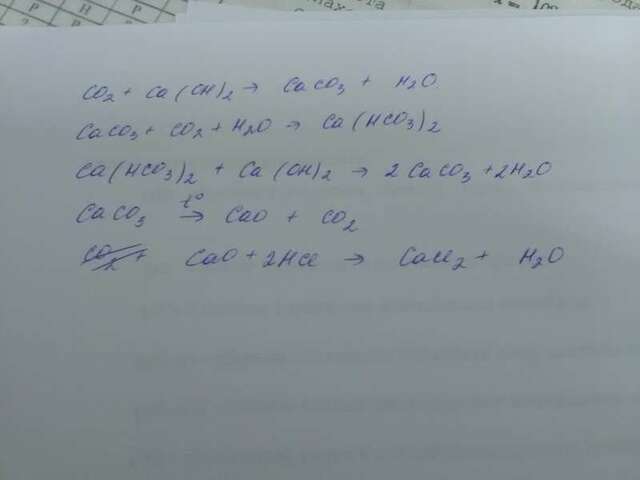 CO2 + Ca(OH)2 → CaCO3 + H2O
CaCO3 + CO2 + H2O → Ca(HCO3)2
Ca(HCO3)2 + Ca(OH)2 → 2CaCO3 + 2H2O
CaCO3 t° → CaO + CO2
CaO + 2HCl → CaCl2 + H2O